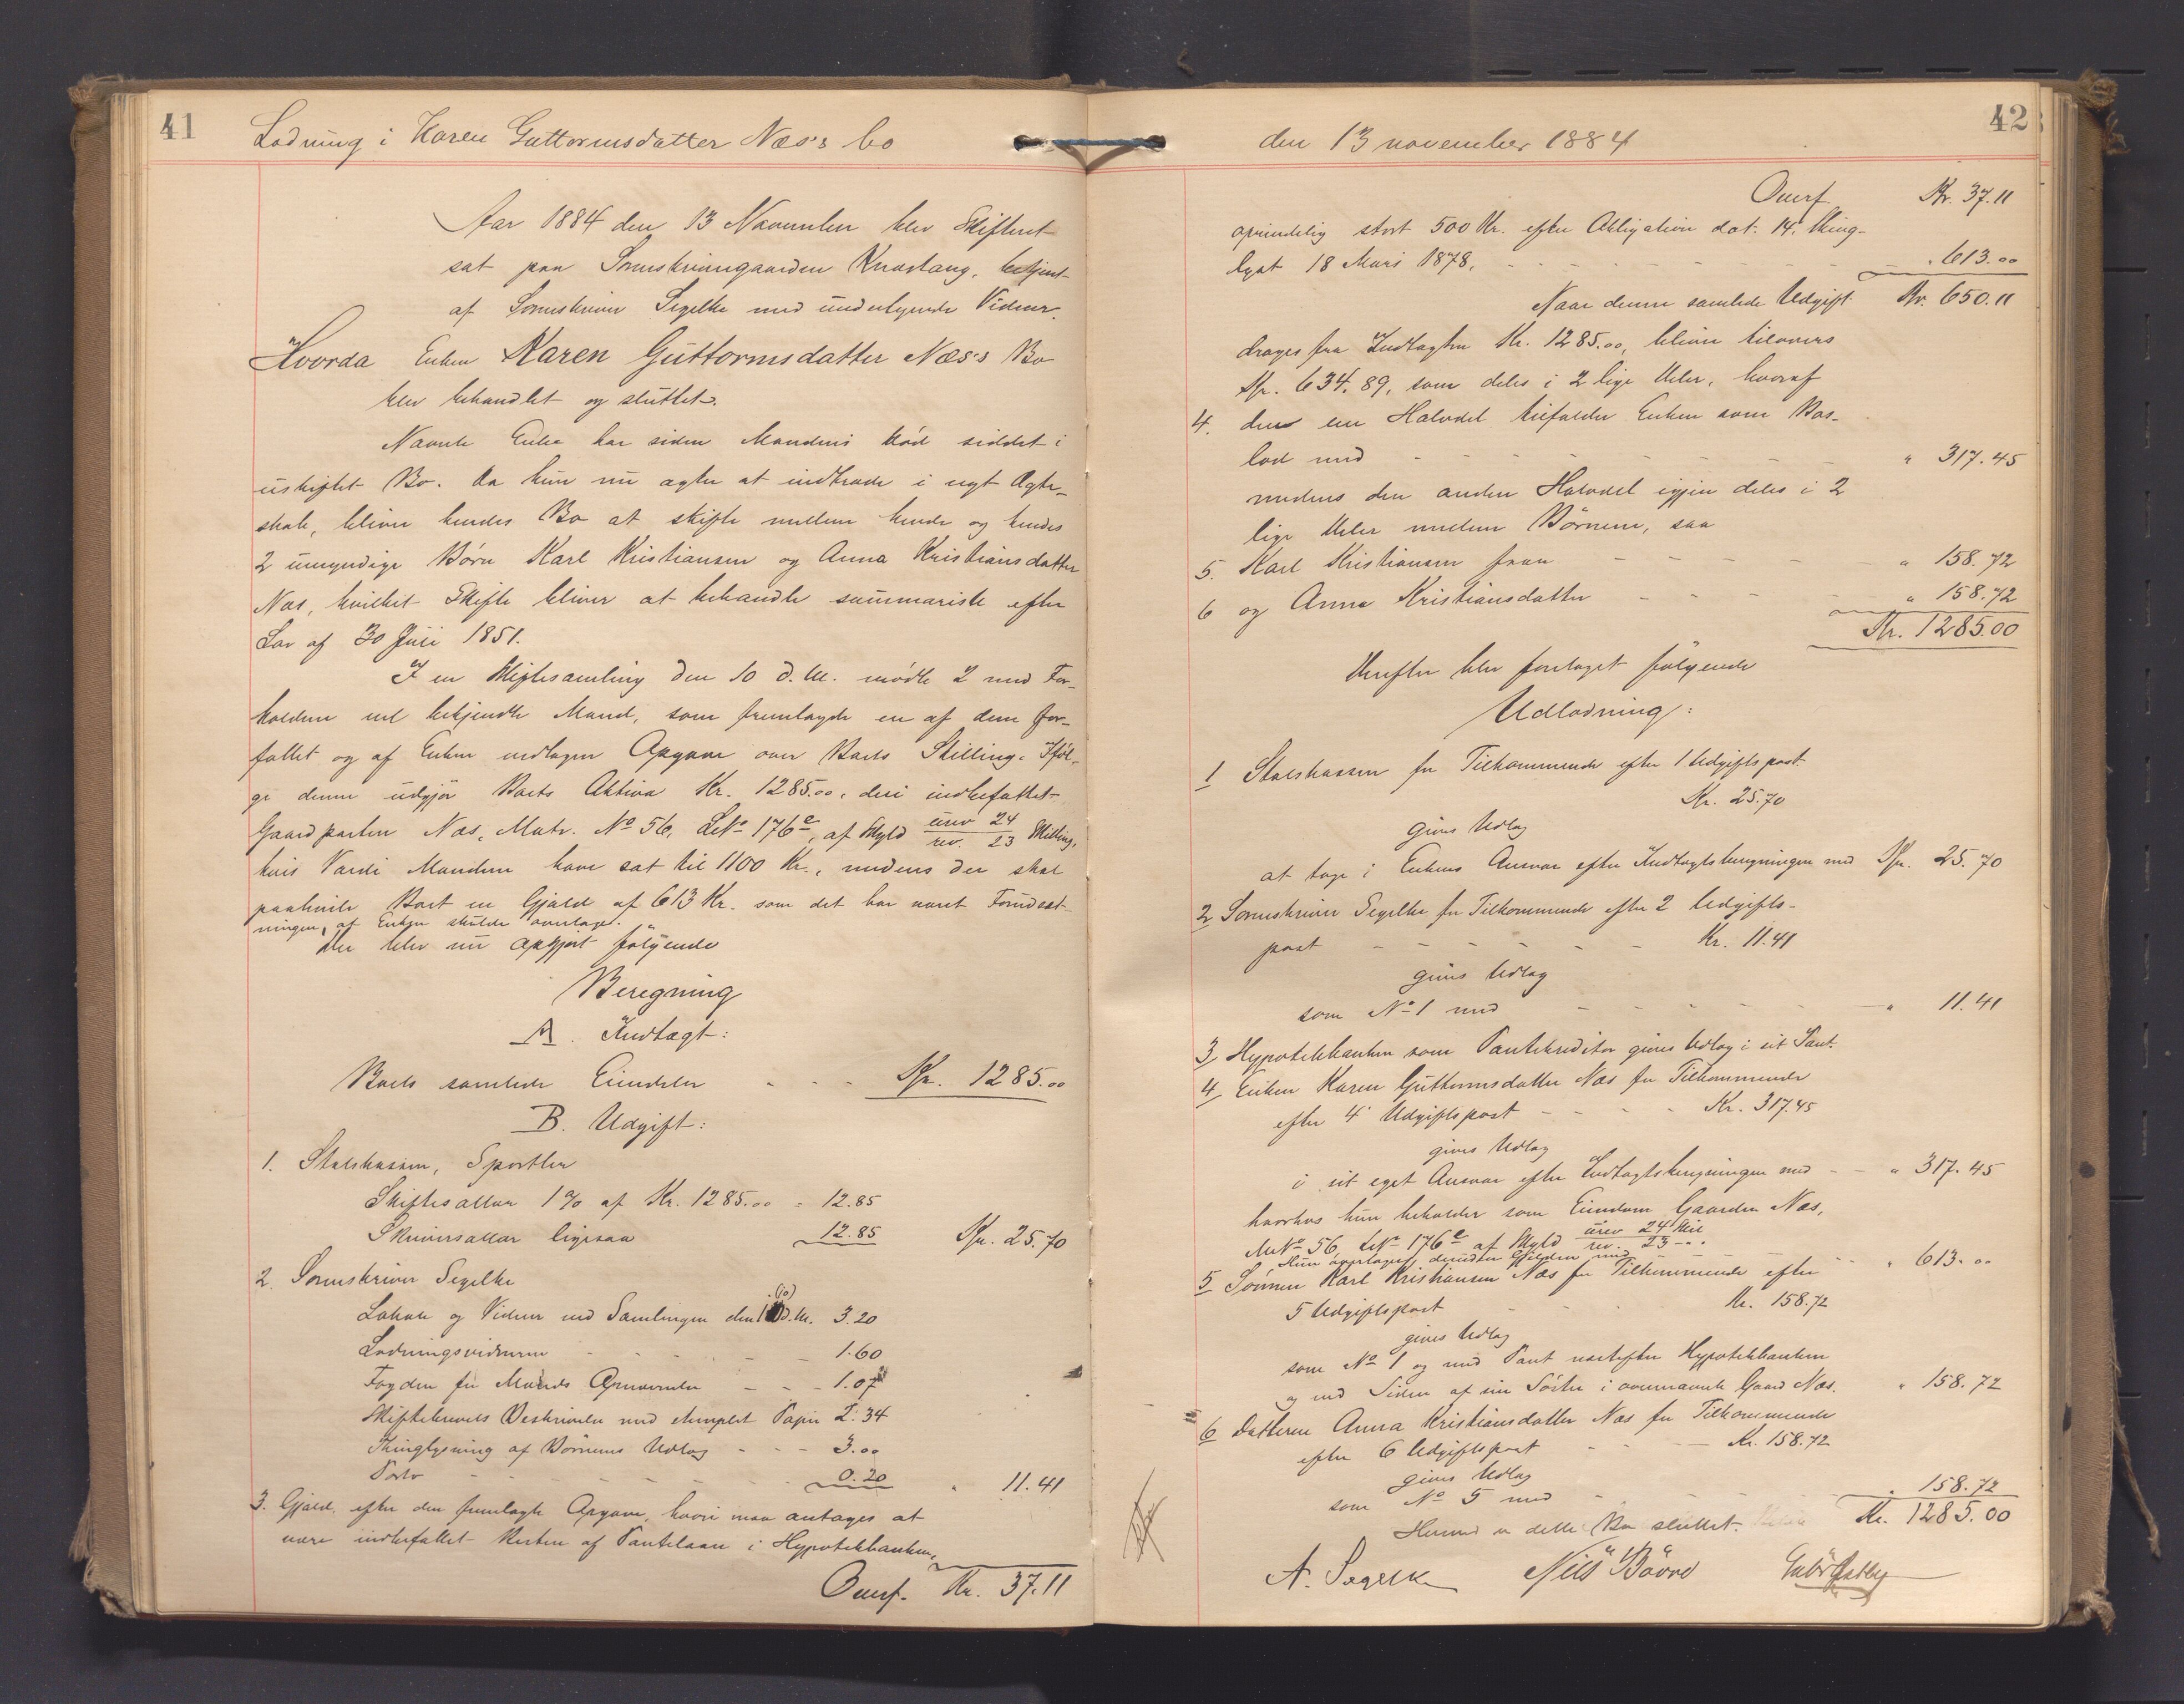 41
Lodning i Karen Guttormsdatter Næs's bo
Aar 1884 den 13 November blev Skifteret
sat paa Sorenskrivergaarden Knastang, betjent
af Sorenskriver Segelke med undertegnede Vidner.
Hvorda Enken Karen Guttormsdatter Næs's Bo
blev behandlet og sluttet.
Nævnte Enke har siden Mandens Död siddet i
uskiftet Bo. Da hun nu agter at indtræde i nyt Ægte-
skab, bliver hendes Bo at skifte mellem hende og hendes
2 umyndige Börn Karl Kristiansen og Anna Kristiansdatter
Næs, hvilket Skifte bliver at behandle summarisk efter
Lov af 30 Juli 1851.
I en Skiftesamling den 10 d. M. mödte 2 med For-
holdene vel bekjendte Mænd, som fremlagde en af dem for-
fattet og af Enken vedtagen Opgave over Boets Stilling. Iföl-
ge denne udgjör Boets Aktiva Kr. 1285.00, deri indbefattet
Gaardparten Næs, Matr. No 56, LNo 176e, af Skyld urev 24 rev. 23 Skilling,
hvis Værdi Mændene have sat til 1100 Kr., medens der skal
paahvile Boet en Gjæld af 613 Kr. som det har været Forudsæt-
ningen, at Enken skulde overtage.
Der blev nu opgjort fölgende
Beregning
A. Indtægt:
Boets samlede Eiendele - - - Kr. 1285.00
B. Udgift:
1. Statskassen, Sportler
Skiftesallar 1% af Kr. 1285.00 = 12.85
Skriversallar ligesaa 12.85 Kr. 25.70
2. Sorenskriver Segelke
Lokale og Vidner ved Samlingen den 10 (10) d. M. 3.20
Lodningsvidnerne - - - 1.60
Fogden for Mænds Opnævnelse - - - 1.07
Skiftebrevets Beskrivelse med stemplet Papir 2.34
Thinglysning af Börnenes Udlæg - - - 3.00
Porto - - - 0.20 " 11.41
3. Gjæld. efter den fremlagte Opgave, hvori maa antages at
være indbefattet Resten af Pantelaan i Hypothekbanken,
Overf. Kr. 37.11
42
den 13 november 1884
Overf. Kr. 37.11
oprindelig stort 500 Kr. efter Obligation dat. 14, thing-
lyst 18 Mars 1878. - - - " 613.00
Naar denne samlede Udgift Kr. 650.11
drages fra Indtægten Kr. 1285.00, bliver tilovers
Kr. 634.89, som deles i 2 lige Dele, hvoraf
4. den ene Halvdel tilfalder Enken som Bos-
lod med - - - " 317.45
medens den anden Halvdel igjen deles i 2
lige Dele mellem Börnene, saa
5. Karl Kristiansen faar - - - " 158.72
6 og Anna Kristiansdatter - - - " 158.72
Kr. 1285.00
Derefter blev foretaget fölgende
Udlodning:
1 Statskassen for Tilkommende efter 1 Udgiftspost
Kr. 25.70
gives Udlæg
at tage i Enkens Ansvar efter Indtægtsberegningen med Kr. 25.70
2 Sorenskriver Segelke for Tilkommende efter 2 Udgifts-
post - - - Kr. 11.41
gives Udlæg
som No 1 med - - - " 11.41
3, Hypothekbanken som Pantekreditor gives Udlæg i sit Pant.
4, Enken Karen Guttormsdatter Næs for Tilkommende
efter 4 Udgiftspost - - - Kr. 317.45
gives Udlæg
i sit eget Ansvar efter Indtægtsberegningen med - - " 317.45
hvorhos hun beholder som Eiendom Gaarden Næs,
MNo 56, LNo 176e af Skyld urev 24 Skil rev. 23 - " .
Hun overtager desuden Gjælden med - - " 613.00
5 Sönnen Karl Kristiansen Næs for Tilkommende efter
5 Udgiftspost - - Kr. 158.72
gives Udlæg
som No 1 og med Pant næstefter Hypothekbanken
og ved Siden af sin Söster i ovennævnte Gaard Næs. " 158.72
6 Datteren Anna Kristiansdatter Næs for Tilkommende
efter 6 Udgiftspost - - - Kr. 158.72
gives Udlæg
som No 5 med - - - " 158.72
Hermed er dette Bo sluttet. Kr. 1285.00
A. Segelke Nils Bövre